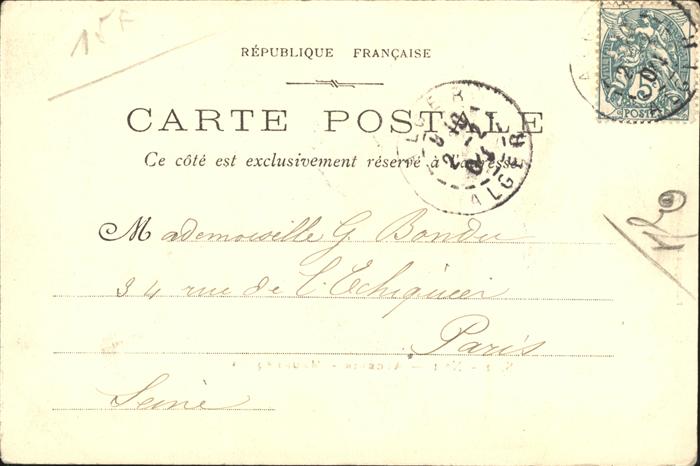 15F
RÉPUBLIQUE FRANÇAISE
CARTE POSTALE
Ce côté est exclusivement réservé à l'adresse
ALGER
5
POSTES
Mademoiselle G Bondu
34 rue de l'Echiquier
Paris
Seine
120